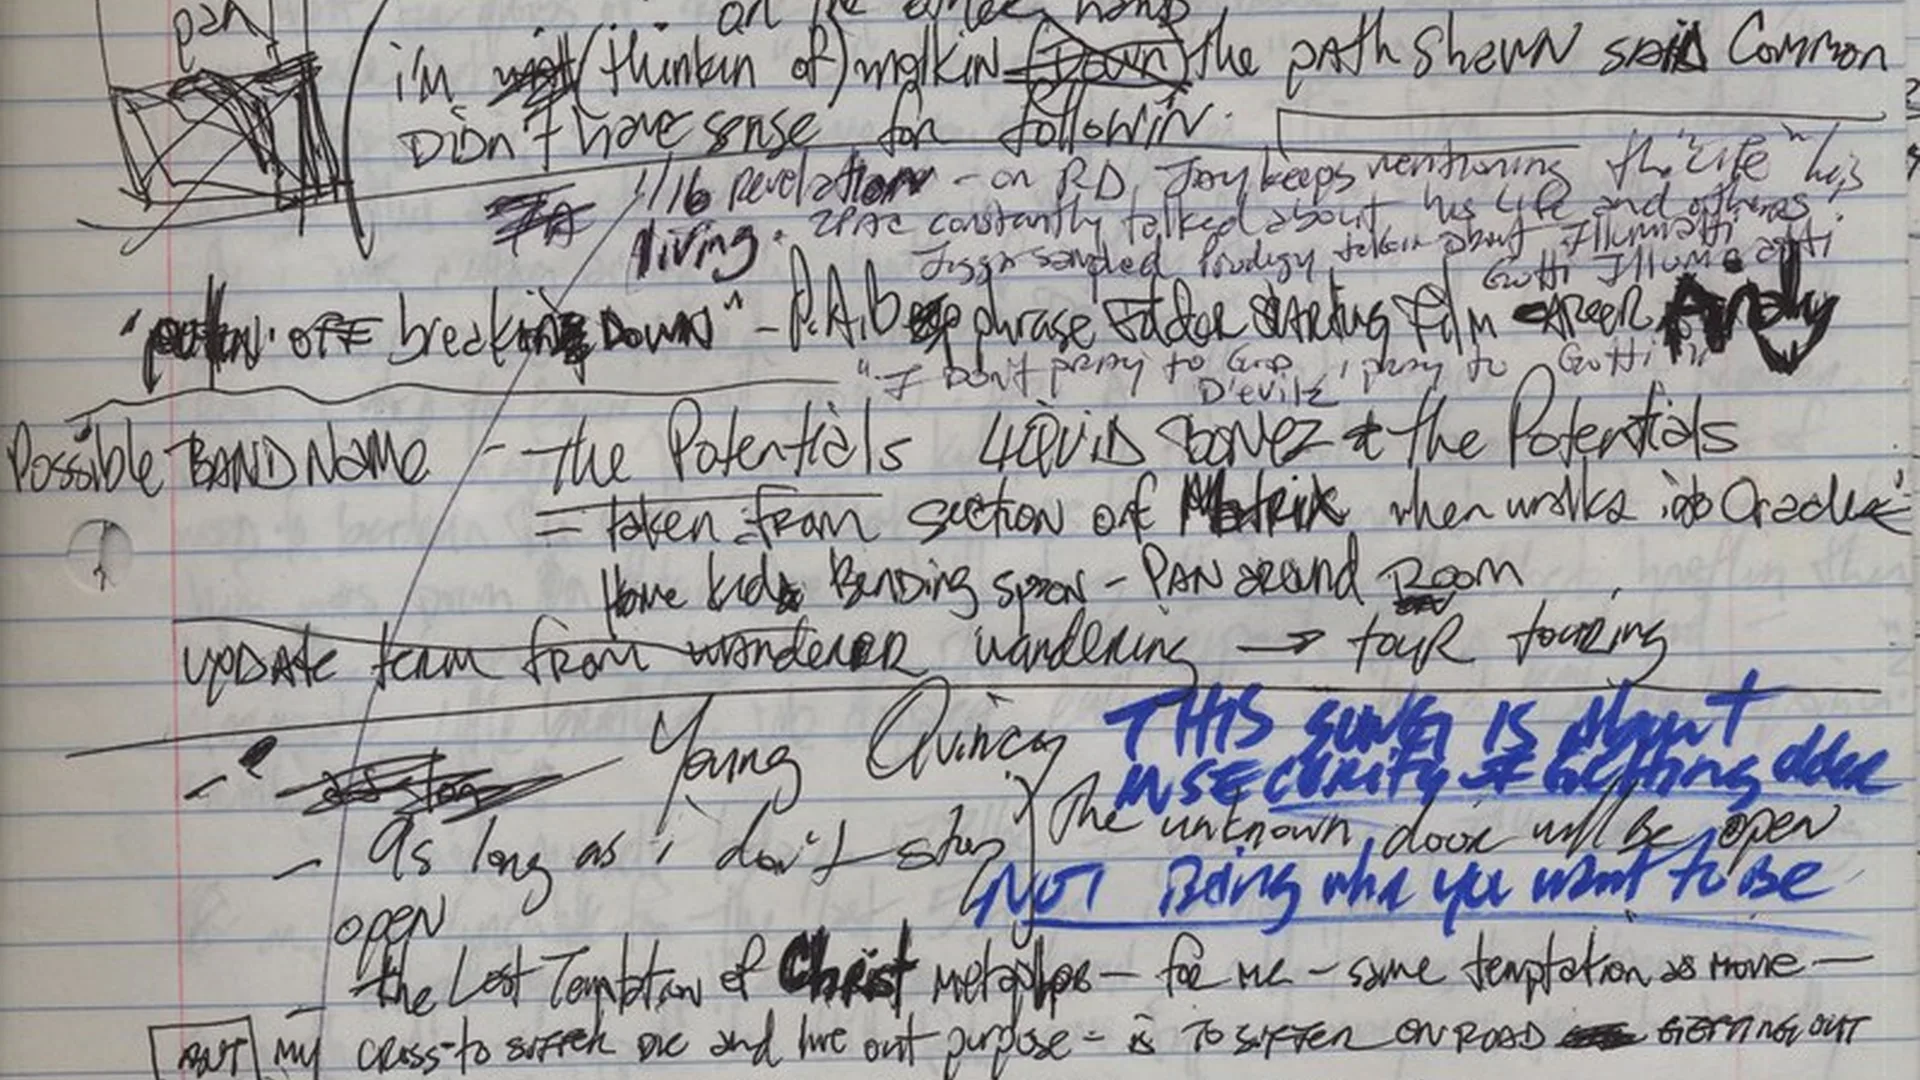 pan
on the other hand
i'm (thinkin of) walkin (Down) the path shown said Common
Didn't have sense for followin.
1/16 Revelation - on RD, Jay keeps mentioning the "Life" he's
living. 2PAC constantly talked about his life and others
Jigga sampled Prodigy talkin about Illuminatti
Gotti Illuminatti
OFF breaking DOWN" - P.A.B phrase Editor Starting Film CAREER Andy
"I Don't pray to God, I pray to Gotti"
D'evilz
Possible BAND NAME - the Potentials LIQUID BONEZ & the Potentials
= taken from section of Matrix when walks into Oracles
Home kids Bending spoon - PAN around Room
UPDATE term from wanderer wandering → tour touring
Young Quincy
THIS SONG IS About
INSECURITY of Getting older
- As long as i don't stop
The unknown door will be open
open
NOT Being who you want to Be
the Last Temptation of Christ metaphor - for me - same temptation as movie -
BUT my cross - to suffer die and live out purpose - is TO SUFFER ON ROAD GETTING OUT